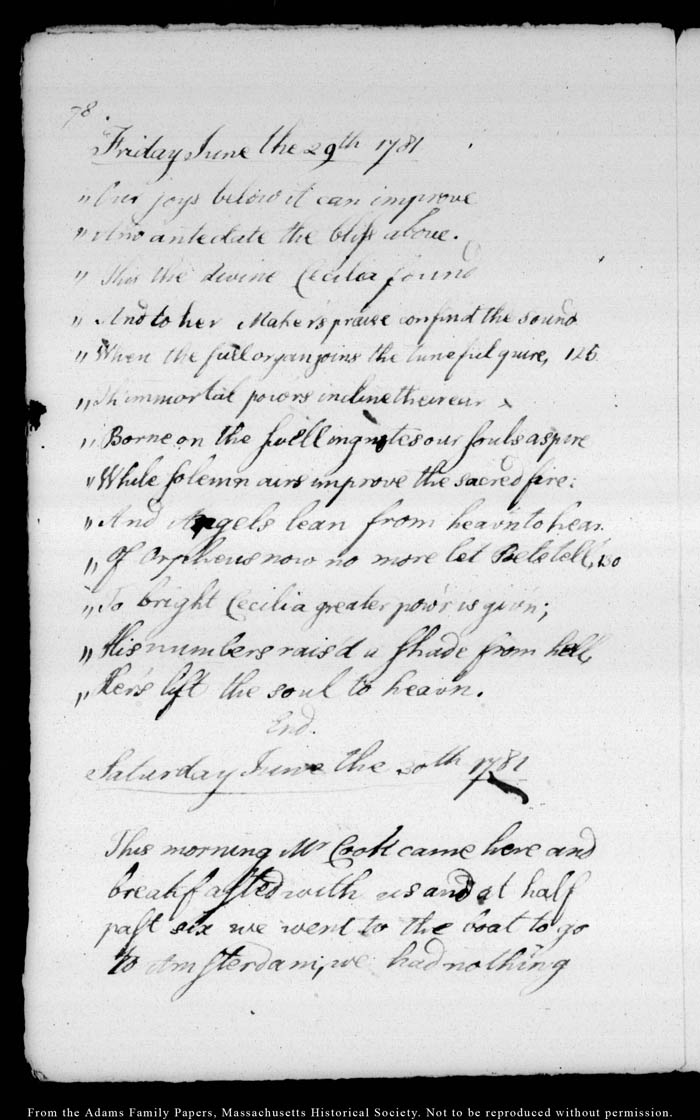 78.
Friday June the 29th 1781
" Our joys below it can improve
" And antedate the bliss above.
" This the divine Cecilia found
" And to her Maker's praise confin'd the sound
" When the full organ joins the tuneful quire, 125
" Th' immortal pow'rs incline their ear
" Borne on the swelling notes our souls aspire
" While solemn airs improve the sacred fire:
" And Angels lean from heav'n to hear.
" Of Orpheus now no more let Poets tell, 130
" To bright Cecilia greater pow'r is giv'n;
" His numbers rais'd a shade from hell,
" Her's lift the soul to heav'n.
End.
Saturday June the 30th 1781
This morning Mr Cook came here and
breakfasted with us and at half
past six we went to the boat to go
to Amsterdam, we had nothing
From the Adams Family Papers, Massachusetts Historical Society. Not to be reproduced without permission.